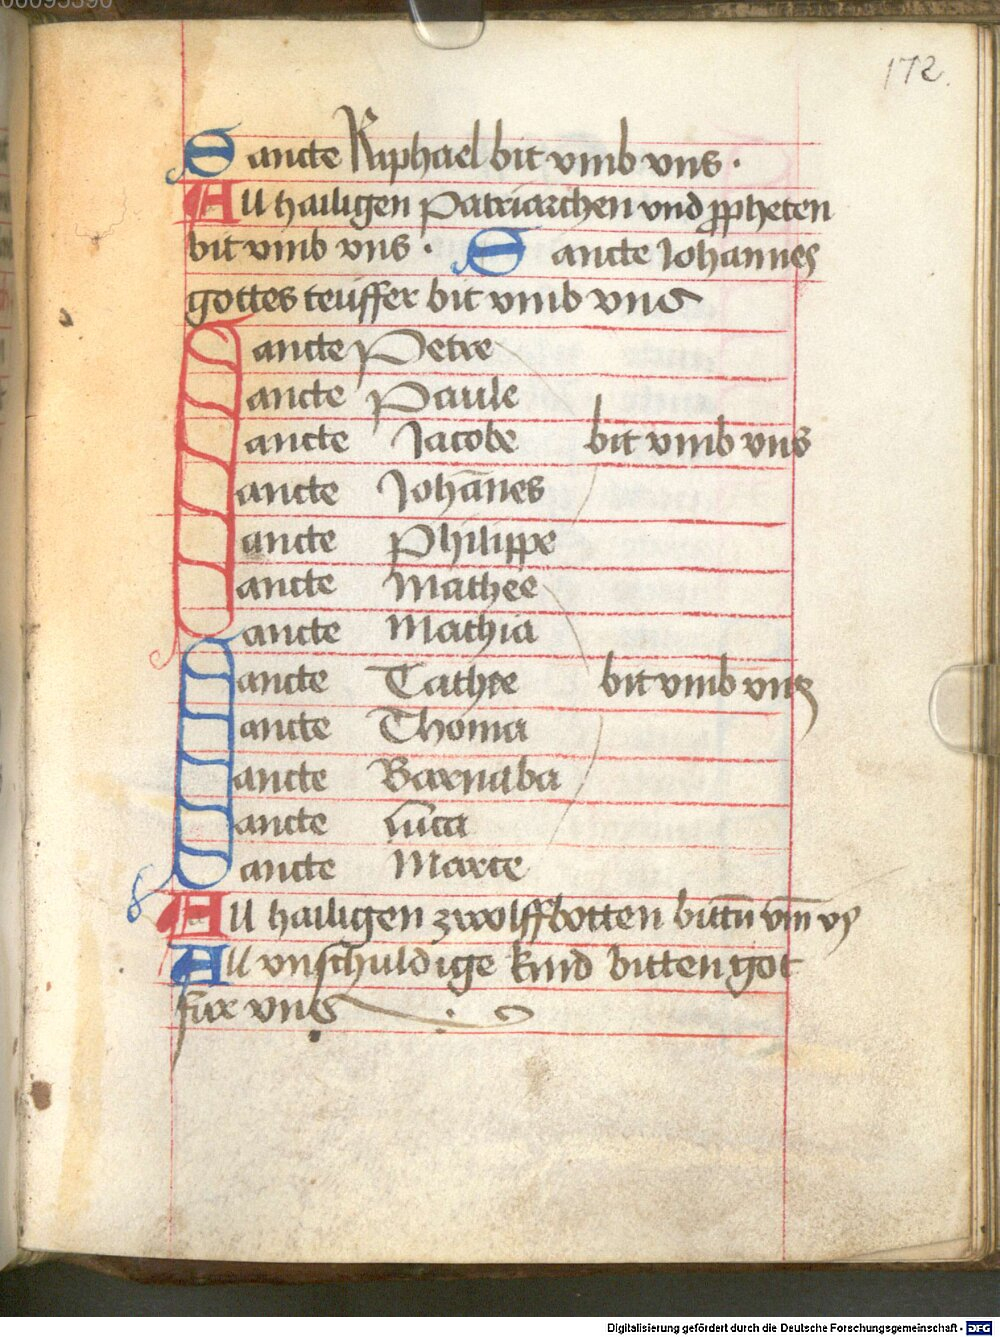 172
Sancte Raphael bit vmb vns ·
All hailigen patriarchen vnd ppheten
bit vmb vns · Sancte Johannes
gottes teuffer bit vmb vns
Sancte Petre
Sancte Paule
Sancte Jacobe bit vmb vns
Sancte Johānes
Sancte Philippe
Sancte Mathee
Sancte Mathia
Sancte Tathee bit vmb vns
Sancte Thoma
Sancte Barnaba
Sancte Luca
Sancte Marce
All hailigen zwolffbotten bittn vm vns
All vnschuldige kind bitten got
für vns
Digitalisierung gefördert durch die Deutsche Forschungsgemeinschaft - DFG